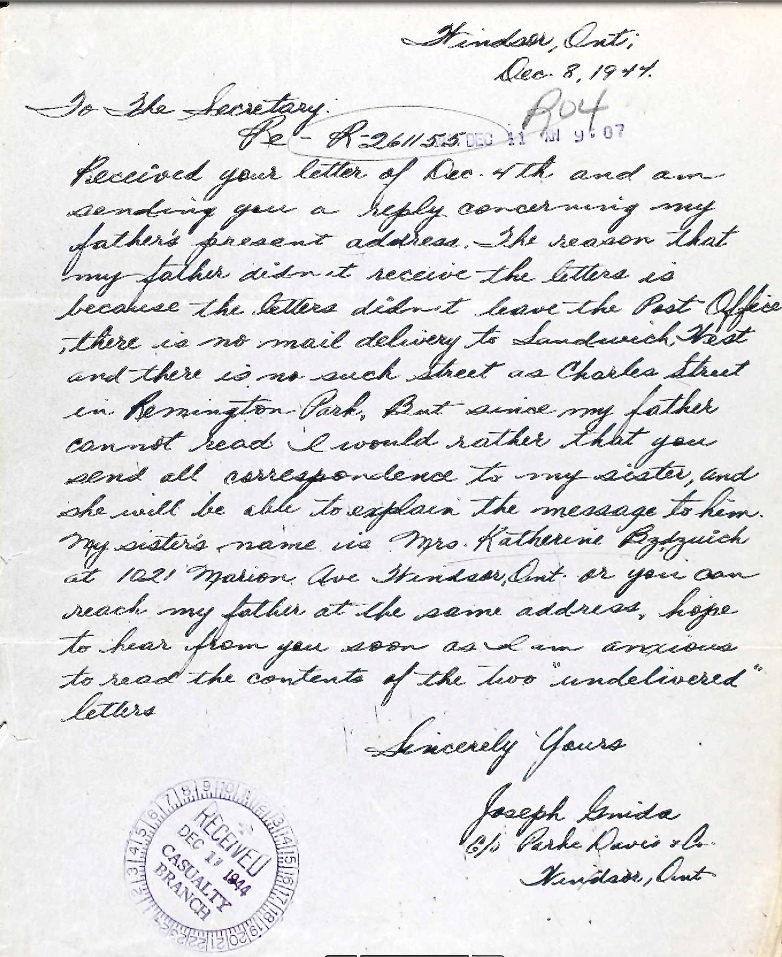 Windsor, Ont;
Dec. 8, 1944.
To The Secretary.
R04
Re - R-261155
DEC 11 AM 9:07
Received your letter of Dec. 4th and am
sending you a reply concerning my
father's present address. The reason that
my father didn't receive the letters is
because the letters didn't leave the Post Office
, there is no mail delivery to Sandwich West
and there is no such street as Charles Street
in Remington Park. But since my father
cannot read I would rather that you
send all correspondence to my sister, and
she will be able to explain the message to him.
My sister's name is Mrs. Katherine
at 1021 Marion Ave Windsor, Ont. or you can
reach my father at the same address, hope
to hear from you soon as I am anxious
to read the contents of the two "undelivered"
letters
Sincerely Yours
Joseph Gnida
c/o Parke Davis & Co.
Windsor, Ont
RECEIVED
DEC 1944
CASUALTY
BRANCH